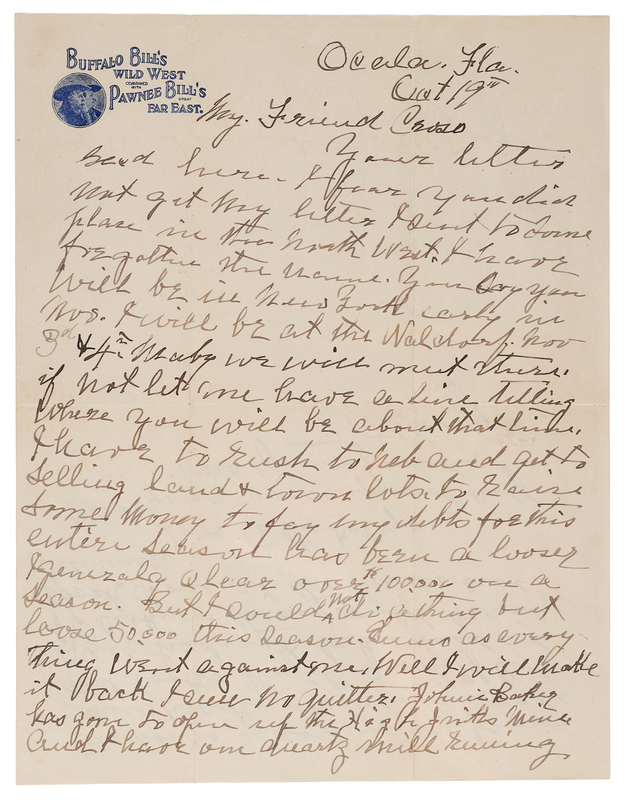 BUFFALO BILL'S
WILD WEST
COMBINED
WITH
PAWNEE BILL'S
GREAT
FAR EAST.
Ocala. Fla.
Oct 19th
My. Friend
Your letter
here. I fear you did
not get my letter I sent to some
place in the North West. I have
forgotten the name. You say you
will be in New York early in
Nov. I will be at the Waldorf. Nov
3rd & 4th. Maby we will meet there.
if not let me have a line telling
where you will be about that time.
I have to rush to Neb and get to
selling land & town lots. to raise
some money to pay my debts for this
entire season has been a looser
I generaly clear over 100.000 on a
season. But I could not do a thing but
loose 50.000 this season. as every
thing went against me. Well I will make
it back I am no quitter. Johnie Baker
has gone to open up the Mine
and I have our quartz mill runing